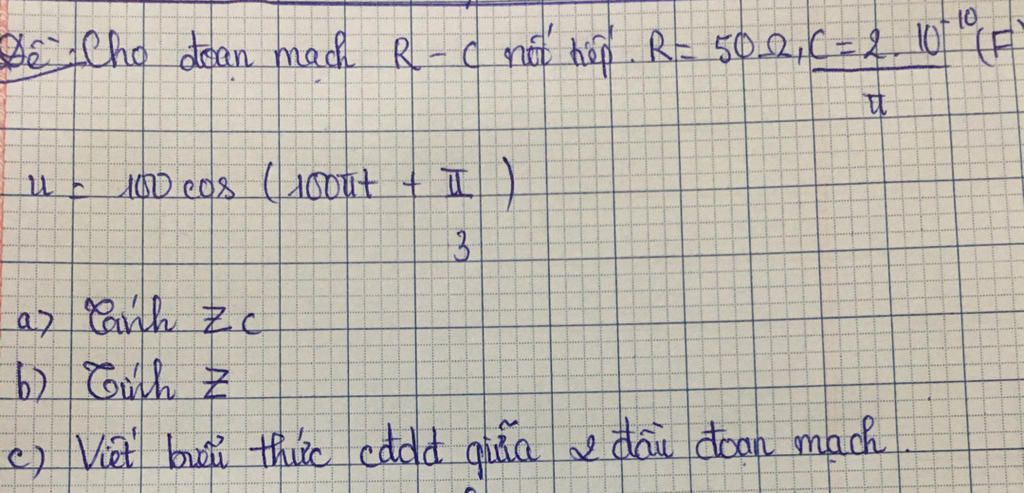 Đề: Cho đoạn mạch R - C nối tiếp. R = 50 Ω, C = 2. 10^-10 (F)
π
u = 100 cos (100πt + π )
3
a) Tính Zc
b) Tính Z
c) Viết biểu thức cđdđ giữa 2 đầu đoạn mạch.